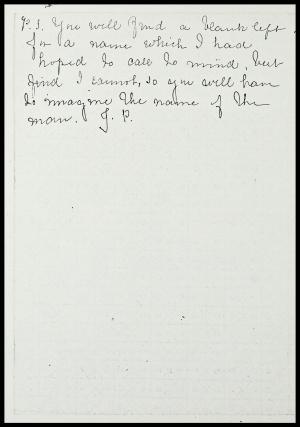 P.S. You will find a blank left
for a name which I had
hoped to call to mind, but
find I cannot, so you will have
to imagine the name of the
man. J. P.